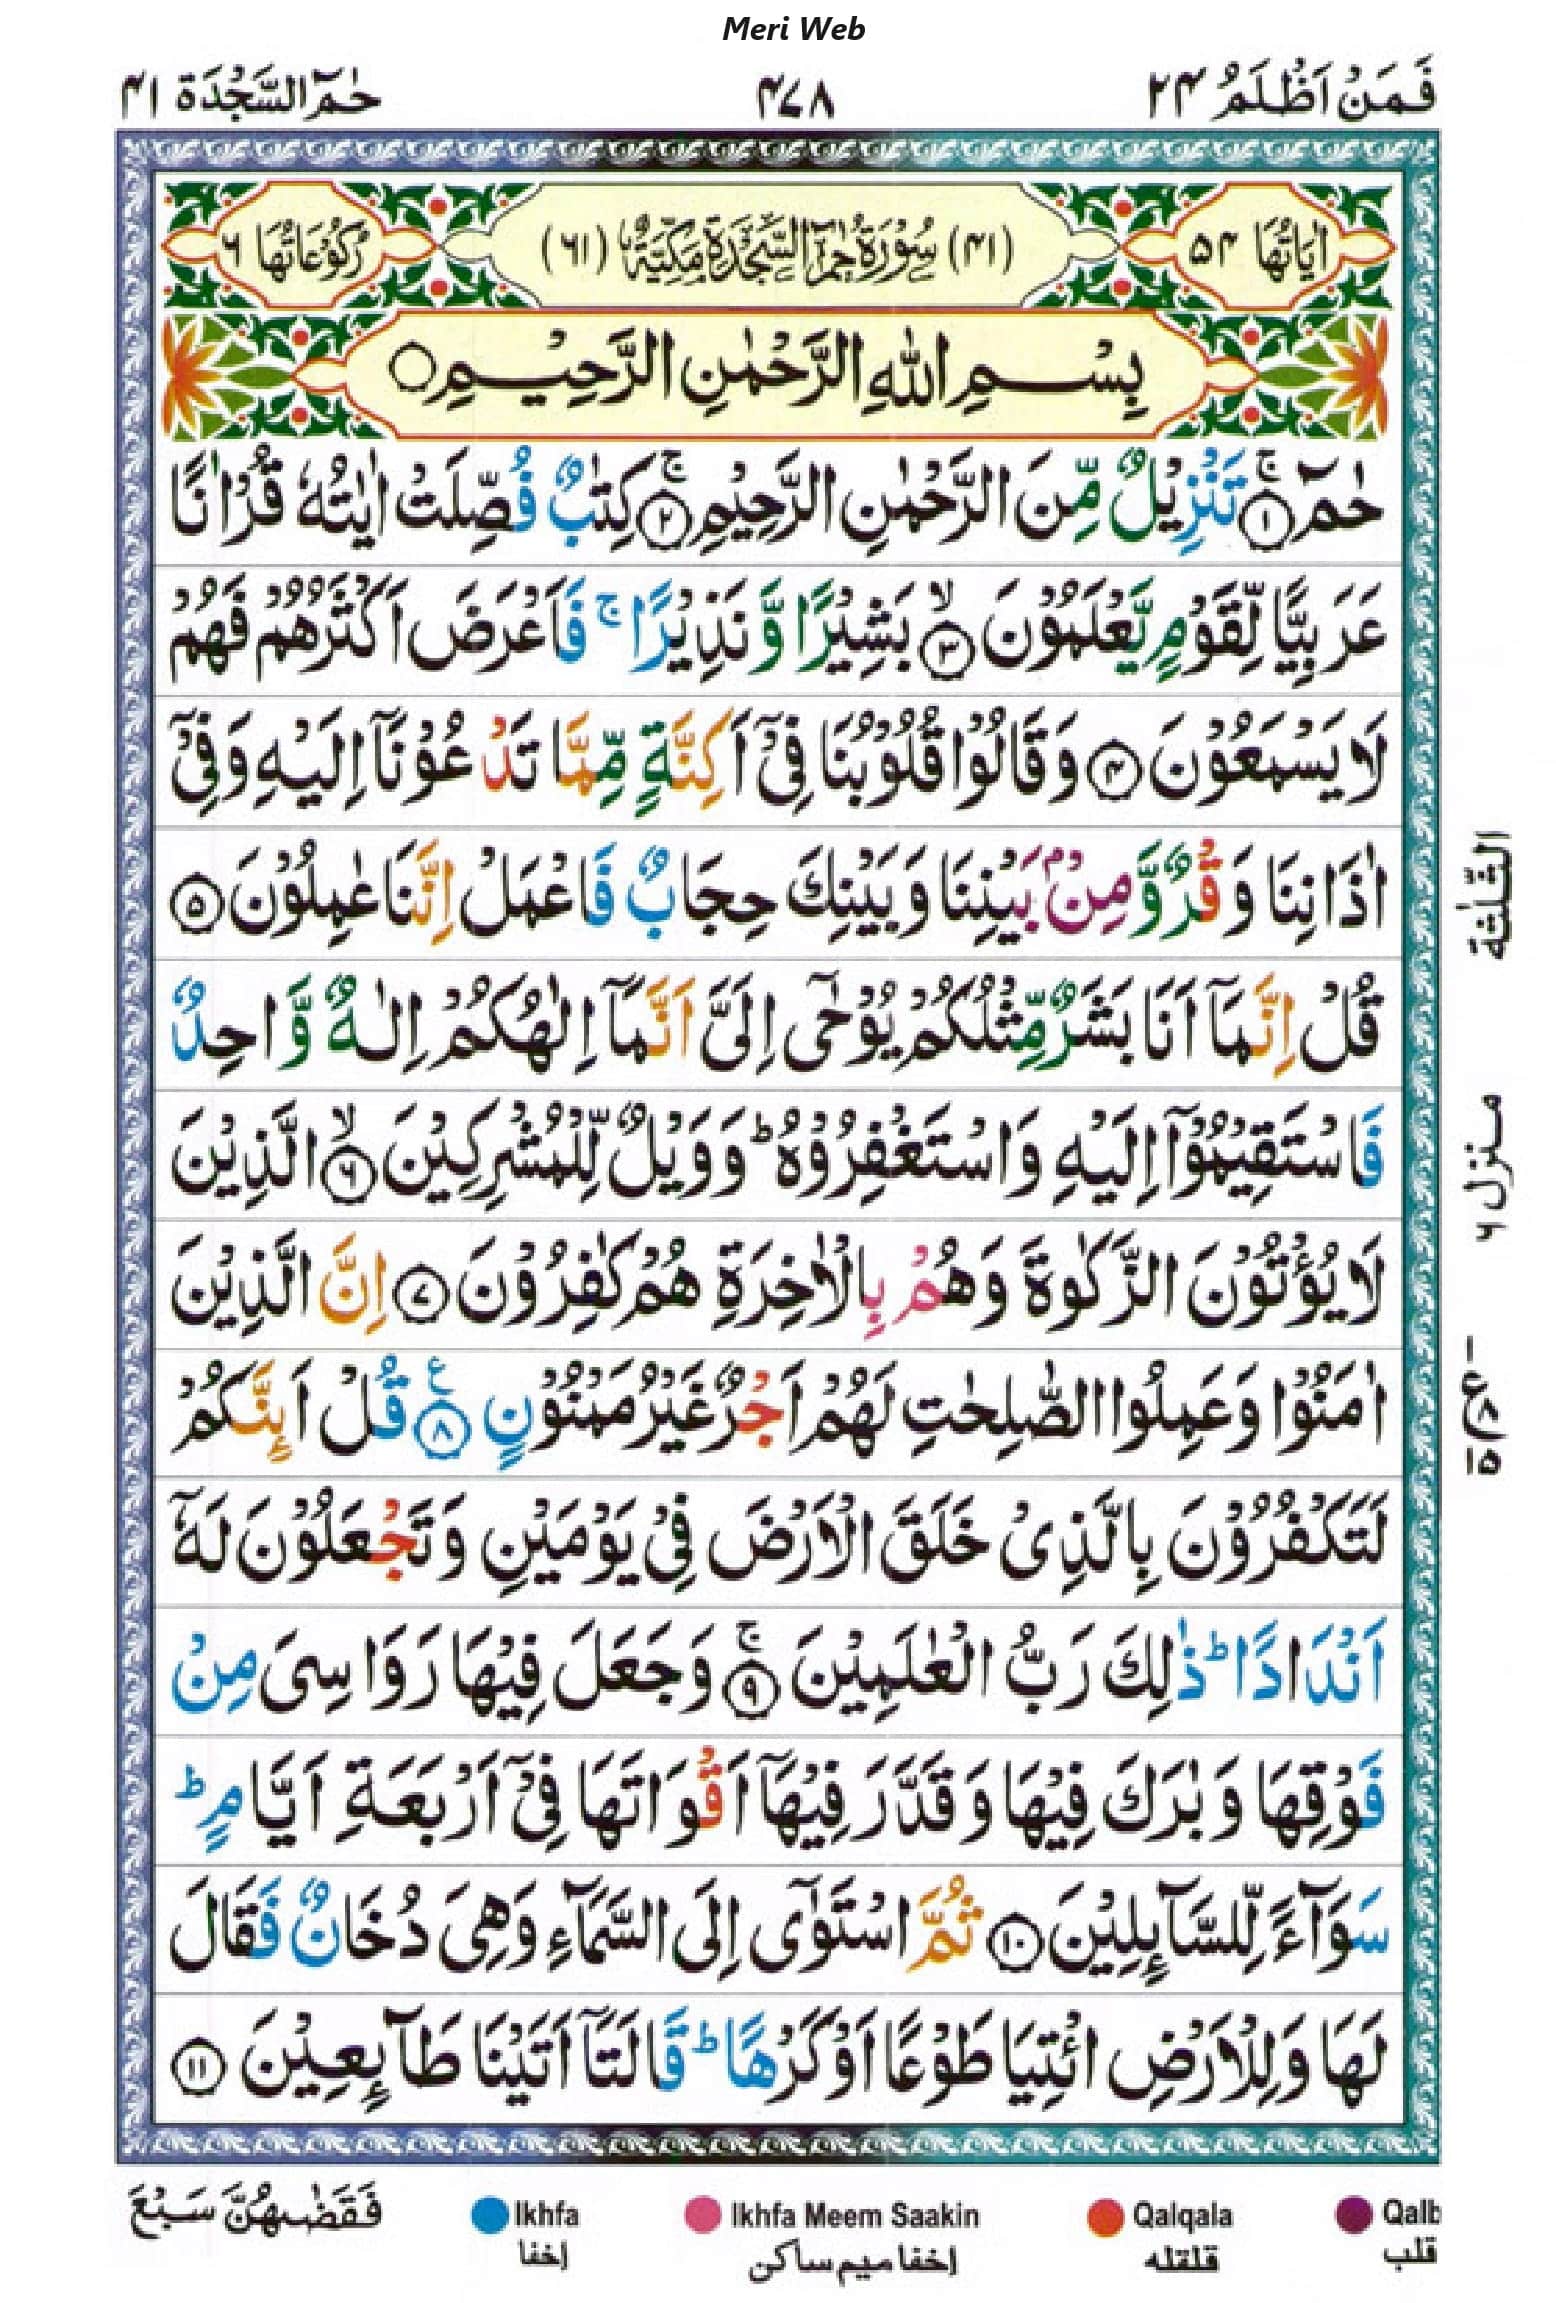 Meri Web
فَمَنْ اَظْلَمُ ۲۴
۴۷۸
حٰمٓ السَّجْدَة ۴۱
اٰيَاتُهَا ۵۴
(۴۱) سُوْرَةُ حٰمٓ السَّجْدَةِ مَكِّيَّةٌ (۶۱)
رُكُوْعَاتُهَا ۶
بِسْمِ اللّٰهِ الرَّحْمٰنِ الرَّحِيْمِ ○
حٰمٓ ۚ ۱ تَنْزِيْلٌ مِّنَ الرَّحْمٰنِ الرَّحِيْمِ ۚ ۲ كِتٰبٌ فُصِّلَتْ اٰيٰتُهٗ قُرْاٰنًا
عَرَبِيًّا لِّقَوْمٍ يَّعْلَمُوْنَ ۙ ۳ بَشِيْرًا وَّ نَذِيْرًا ۚ فَاَعْرَضَ اَكْثَرُهُمْ فَهُمْ
لَا يَسْمَعُوْنَ ۴ وَ قَالُوْا قُلُوْبُنَا فِيْۤ اَكِنَّةٍ مِّمَّا تَدْعُوْنَاۤ اِلَيْهِ وَ فِيْۤ
اٰذَانِنَا وَقْرٌ وَّ مِنْۢ بَيْنِنَا وَ بَيْنِكَ حِجَابٌ فَاعْمَلْ اِنَّنَا عٰمِلُوْنَ ۵
قُلْ اِنَّمَاۤ اَنَا بَشَرٌ مِّثْلُكُمْ يُوْحٰۤى اِلَيَّ اَنَّمَاۤ اِلٰهُكُمْ اِلٰهٌ وَّاحِدٌ
فَاسْتَقِيْمُوْۤا اِلَيْهِ وَ اسْتَغْفِرُوْهُ ؕ وَ وَيْلٌ لِّلْمُشْرِكِيْنَ ۙ ۶ الَّذِيْنَ
لَا يُؤْتُوْنَ الزَّكٰوةَ وَ هُمْ بِالْاٰخِرَةِ هُمْ كٰفِرُوْنَ ۷ اِنَّ الَّذِيْنَ
اٰمَنُوْا وَ عَمِلُوا الصّٰلِحٰتِ لَهُمْ اَجْرٌ غَيْرُ مَمْنُوْنٍ ۸ ع قُلْ اَئِنَّكُمْ
لَتَكْفُرُوْنَ بِالَّذِيْ خَلَقَ الْاَرْضَ فِيْ يَوْمَيْنِ وَ تَجْعَلُوْنَ لَهٗۤ
اَنْدَادًا ؕ ذٰلِكَ رَبُّ الْعٰلَمِيْنَ ۚ ۹ وَ جَعَلَ فِيْهَا رَوَاسِيَ مِنْ
فَوْقِهَا وَ بٰرَكَ فِيْهَا وَ قَدَّرَ فِيْهَاۤ اَقْوَاتَهَا فِيْۤ اَرْبَعَةِ اَيَّامٍ ؕ
سَوَآءً لِّلسَّآئِلِيْنَ ۱۰ ثُمَّ اسْتَوٰۤى اِلَى السَّمَآءِ وَ هِيَ دُخَانٌ فَقَالَ
لَهَا وَ لِلْاَرْضِ ائْتِيَا طَوْعًا اَوْ كَرْهًا ؕ قَالَتَاۤ اَتَيْنَا طَآئِعِيْنَ ۱۱
الثّلٰثة
منزل ۶
فَقَضٰىهُنَّ سَبْعَ
Ikhfa
اخفا
Ikhfa Meem Saakin
اخفا میم ساکن
Qalqala
قلقله
Qalb
قلب